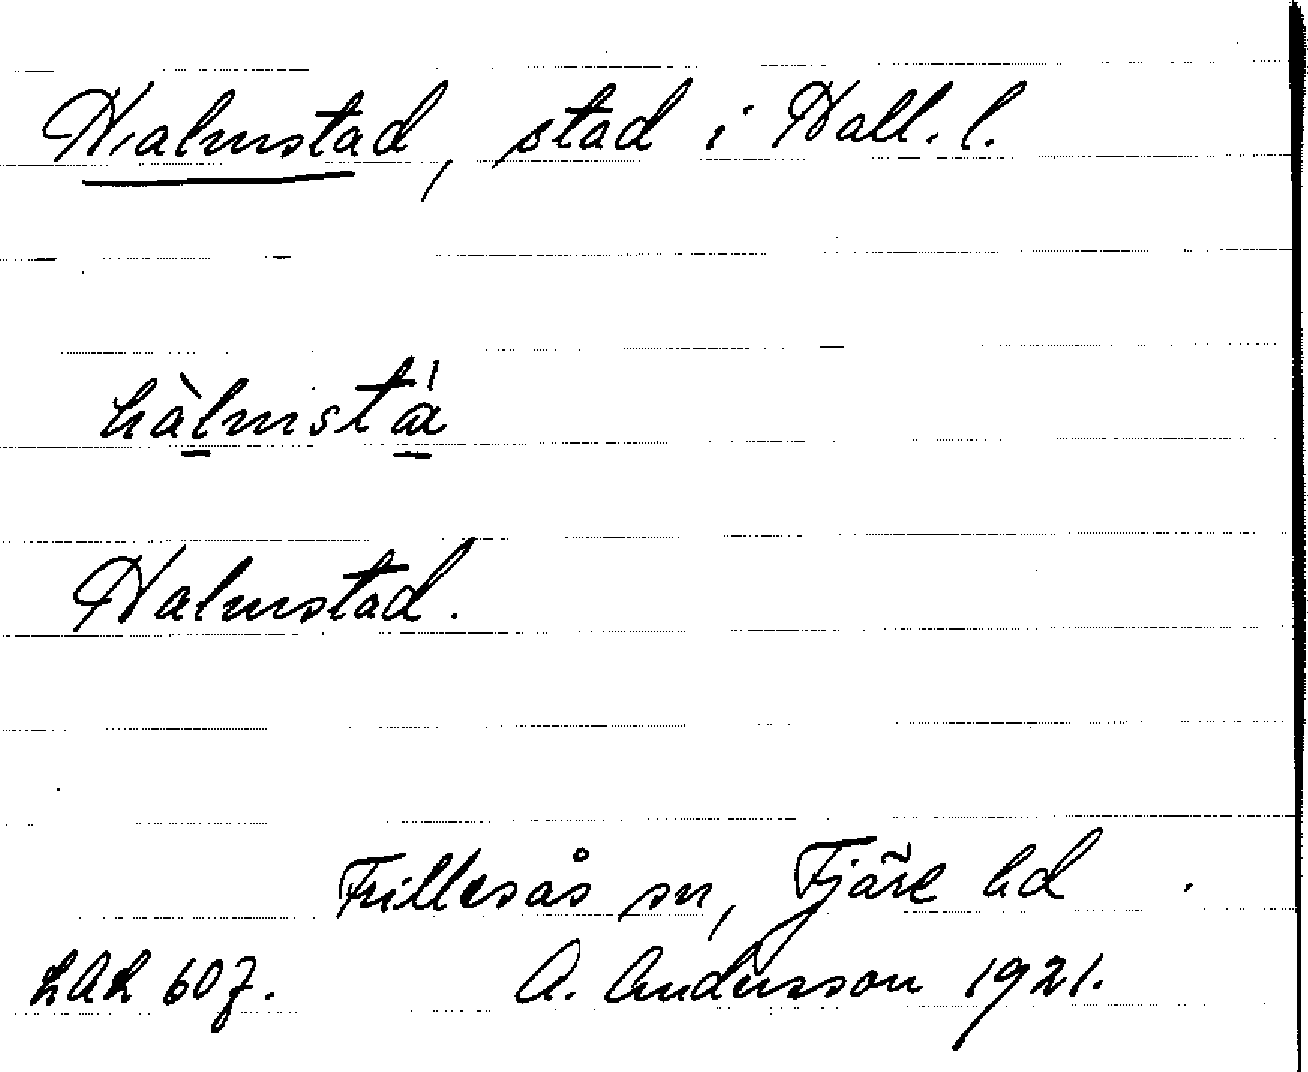 Halmstad, stad i Hall. l.
hàlmstá
Halmstad.
Frillesås sn, Fjäre hd
LAL 607. A. Andersson 1921.